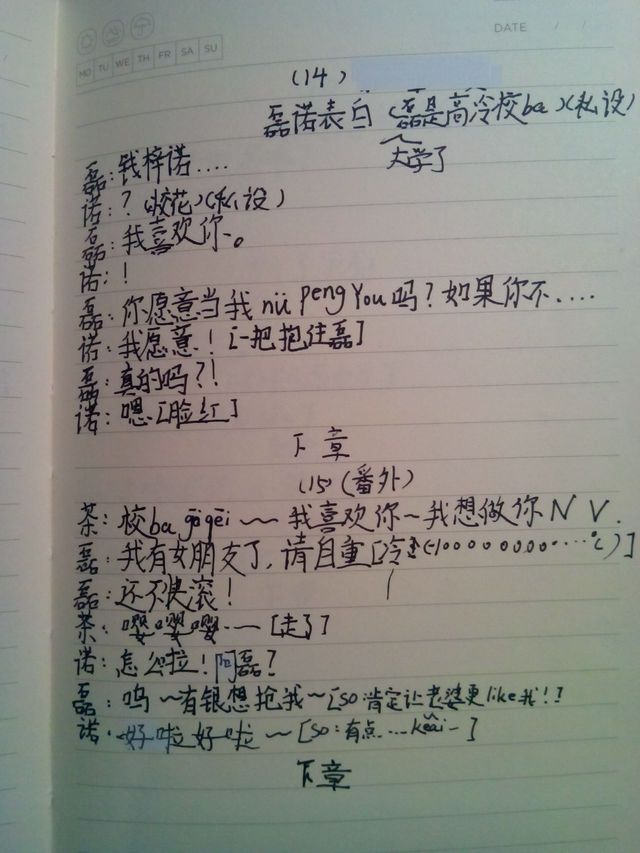 DATE / /
MO TU WE TH FR SA SU
(14)
磊诺表白(磊是高冷校ba)(私设)
大学了
磊:钱梓诺....
诺:?(校花)(私设)
磊:我喜欢你。
诺:!
磊:你愿意当我nü peng you吗?如果你不....
诺:我愿意![一把抱住磊]
磊:真的吗?!
诺:嗯[脸红]
下章
(15)(番外)
茶:校ba gēgēi~~我喜欢你~我想做你N V.
磊:我有女朋友了,请自重[冷(-100000000....℃)]
磊:还不快滚!
茶:嘤嘤嘤~~[走了]
诺:怎么啦!阿磊?
磊:呜~有银想抢我~[so:肯定让老婆更like我!]
诺:好啦好啦~[so:有点...kěài~]
下章